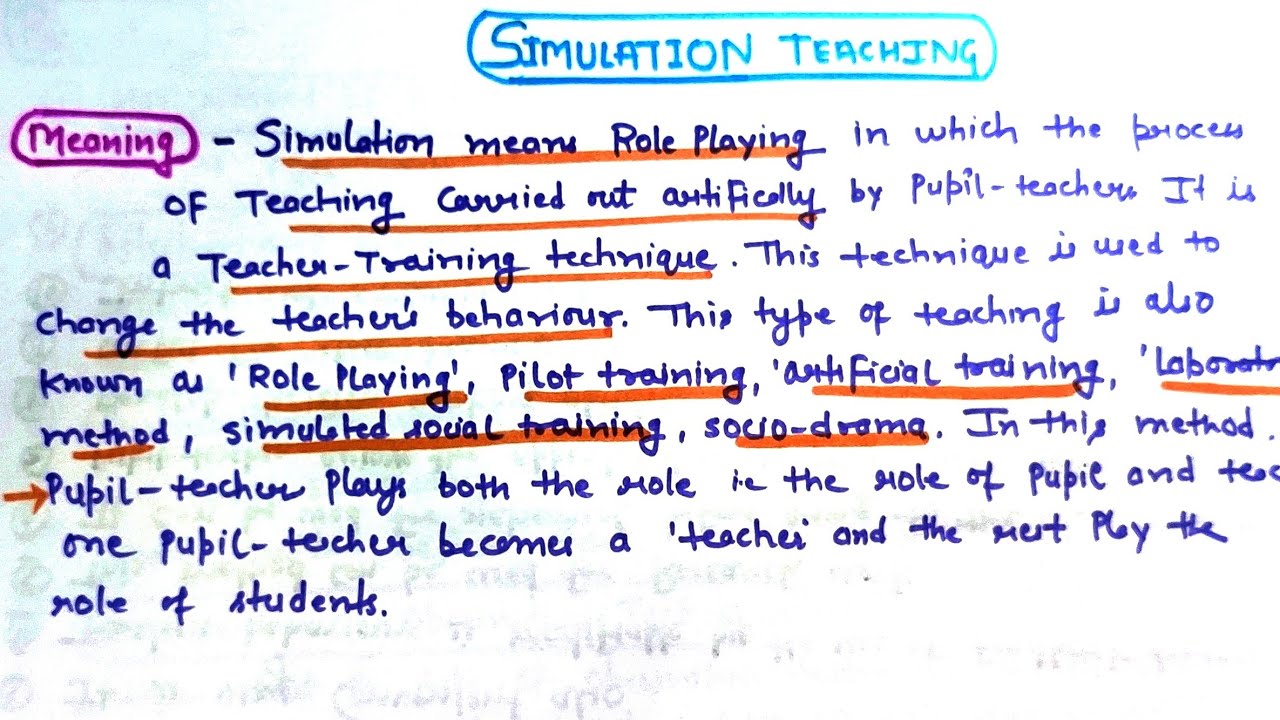 SIMULATION TEACHING
Meaning - Simulation means Role Playing in which the process
of Teaching Carried out artifically by Pupil-teachers. It is
a Teacher-Training technique. This technique is used to
change the teacher's behaviour. This type of teaching is also
known as 'Role Playing', Pilot training, 'artificial training, 'Laborat
method, simulated social training, socio-drama. In this method.
→ Pupil-teacher Plays both the role i.e the role of Pupil and teac
one pupil-teacher becomes a 'teacher' and the rest Play the
role of students.